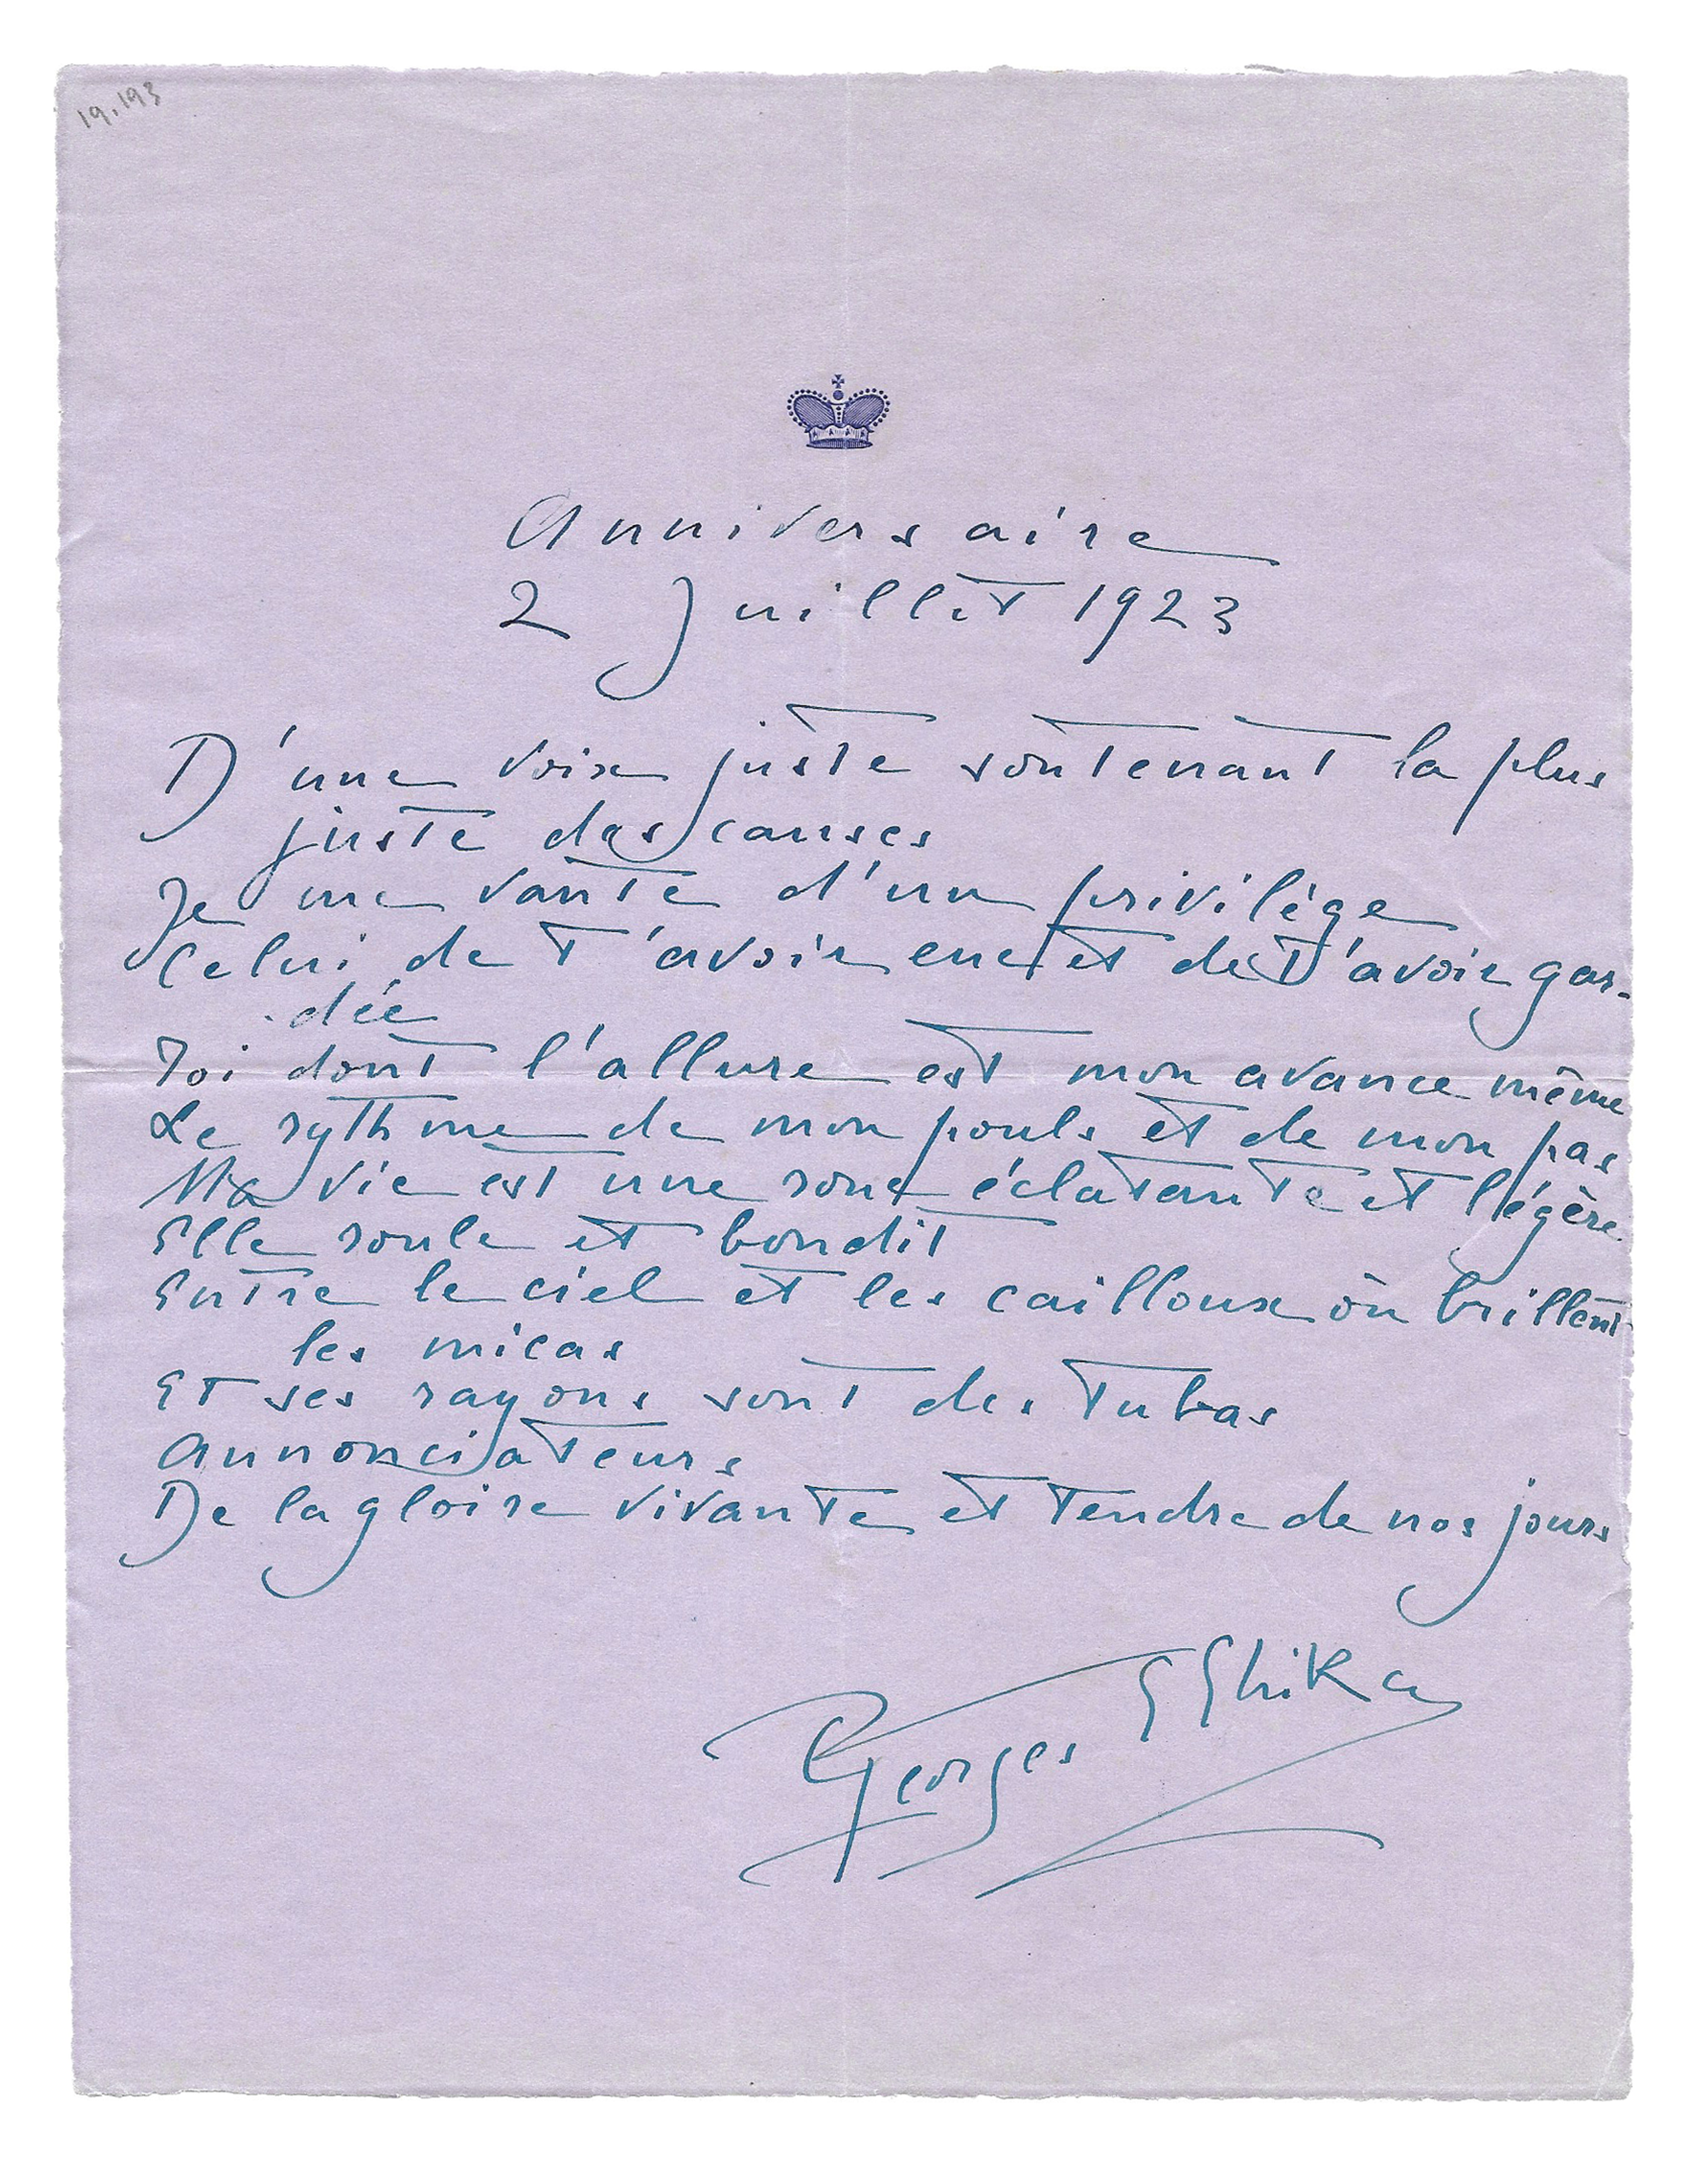 19.193
Anniversaire
2 Juillet 1923
D'une voix juste soutenant la plus
juste des causes
Je me vante d'un privilège
Celui de t'avoir eue et de t'avoir gar-
-dée
Toi dont l'allure est mon avance même
Le rythme de mon pouls et de mon pas
Ma vie est une roue éclatante et légère
Elle roule et bondit
Entre le ciel et les cailloux où brillent
les micas
Et ses rayons sont des tubas
annonciateurs
De la gloire vivante et tendre de nos jours
Georges G Ghika